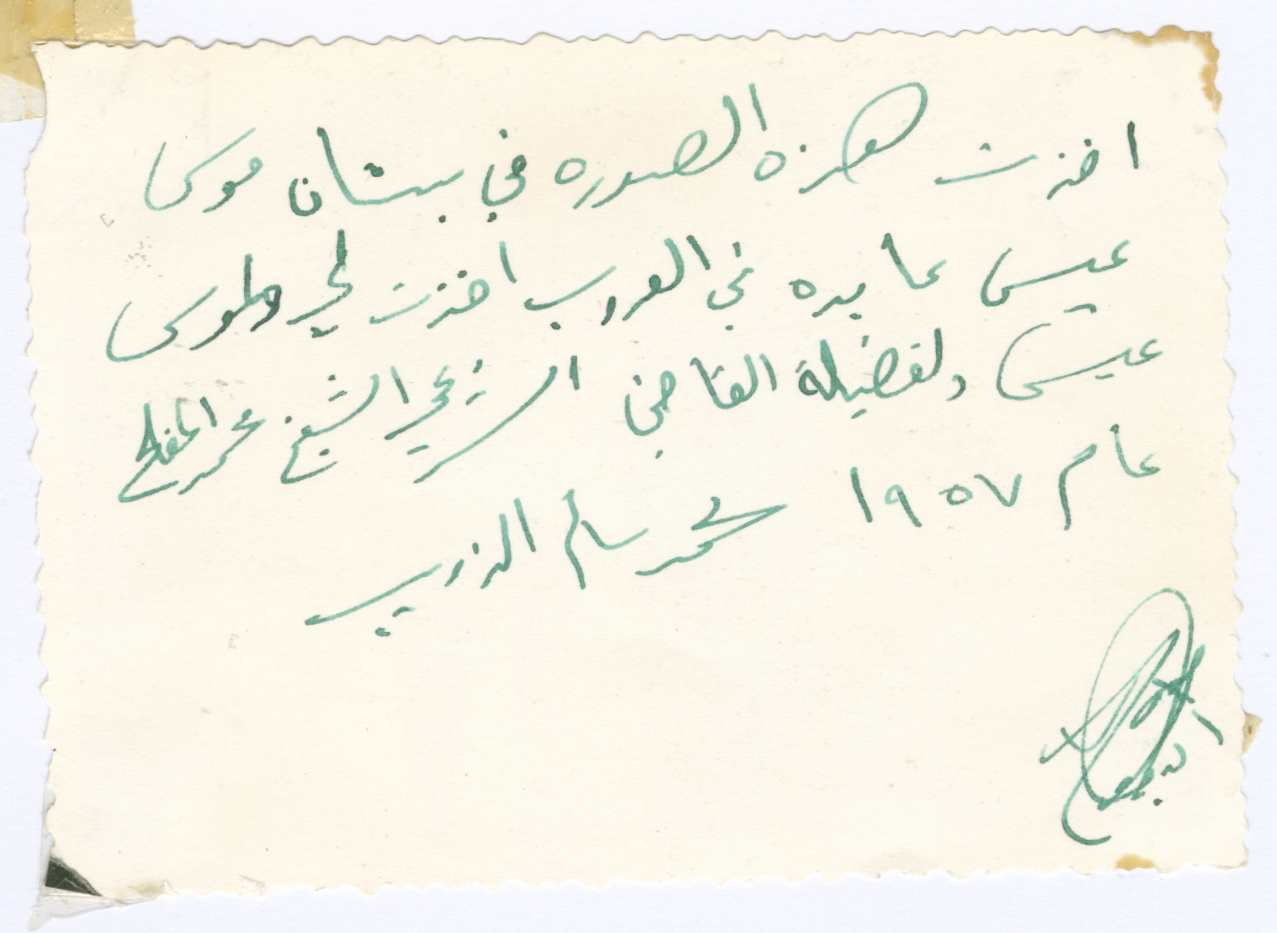 اخذت هذه الصوره في بستان موسى
عيسى عابده في العروب اخذت لي ولموسى
عيسى ولفضيلة القاضي الشرعي الشيخ محمد المفلح
عام ١٩٥٧ محمد سالم الذويب